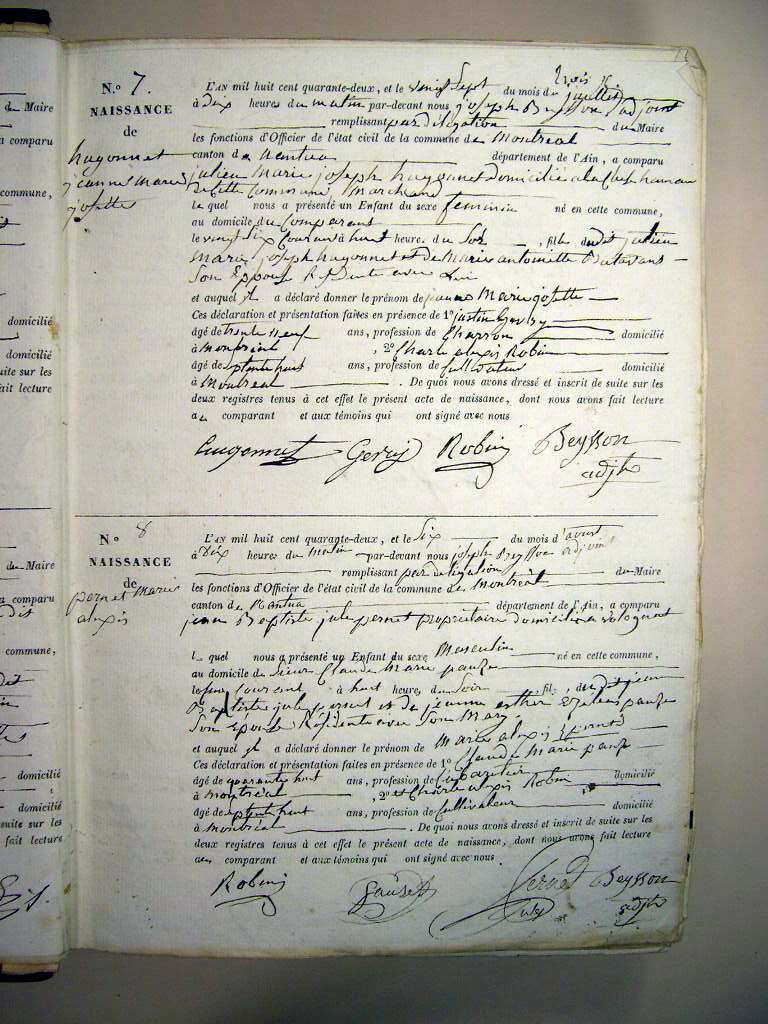 de Maire
a comparu
commune,
domicilié
domicilié
suite sur les
fait lecture
N.º 7.
NAISSANCE
de
hugonnet
jeanne Marie
josette
L'AN mil huit cent quarante-deux, et le vingt Sept du mois de juillet
à dix heures du matin par-devant nous joseph Beysson adjoint
remplissant par délégation du Maire
les fonctions d'Officier de l'état civil de la commune de Montréal
canton de Nantua département de l'Ain, a comparu
julien Marie joseph hugonnet domicilié a
Commune, Marchand
le quel nous a présenté un Enfant du sexe feminin né en cette commune,
au domicile du Comparant
le vingt Six Courant à huit heures du Soir, fille dudit julien
Marie joseph hugonnet et de Marie antoinette
Son Epouse Résidente avec Lui
et auquel il a déclaré donner le prénom de jeanne Marie josette
Ces déclaration et présentation faites en présence de 1º justin
âgé de trente neuf ans, profession de Charron domicilié
à Montréal, 2º Charle alexis Robin
âgé de septante huit ans, profession de Cultivateur domicilié
à Montréal. De quoi nous avons dressé et inscrit de suite sur les
deux registres tenus à cet effet le présent acte de naissance, dont nous avons fait lecture
au comparant et aux témoins qui ont signé avec nous
Robin Beysson
adjt
N.º 8
NAISSANCE
de
pernet Marie
alexis
L'AN mil huit cent quarante-deux, et le Six du mois d'aout
à Dix heures du Matin par-devant nous joseph Beysson adjoint
remplissant par délégation du Maire
les fonctions d'Officier de l'état civil de la commune de Montréal
canton de Nantua département de l'Ain, a comparu
jean Baptiste jule pernet propriétaire domicilié a
le quel nous a présenté un Enfant du sexe Masculin né en cette commune,
au domicile de Sieur Claude Marie
le courant à huit heures du Soir, fils dudit jean
Baptiste jule pernet et de jeanne esther
Son Epouse Résidente avec Son Mary
et auquel il a déclaré donner le prénom de Marie alexis
Ces déclaration et présentation faites en présence de 1º Claude Marie
âgé de quarante huit ans, profession de domicilié
à Montréal, 2º Charle alexis Robin
âgé de septante huit ans, profession de Cultivateur domicilié
à Montréal. De quoi nous avons dressé et inscrit de suite sur les
deux registres tenus à cet effet le présent acte de naissance, dont nous avons fait lecture
au comparant et aux témoins qui ont signé avec nous
Robin Pernet Beysson
adjt